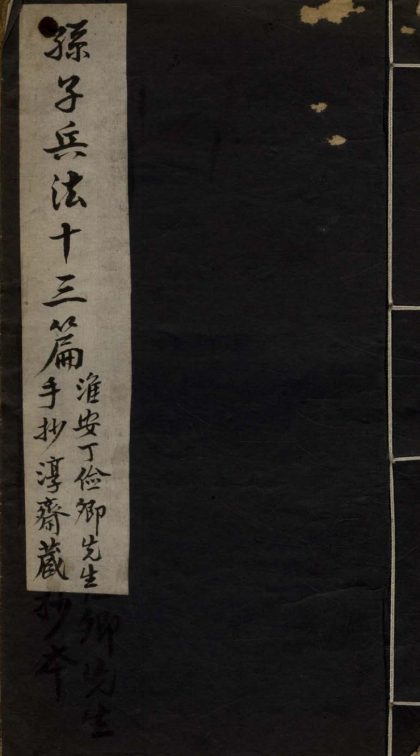 孫子兵法十三篇
淮安丁俭卿先生
手抄淳齋藏
卿先生
抄本